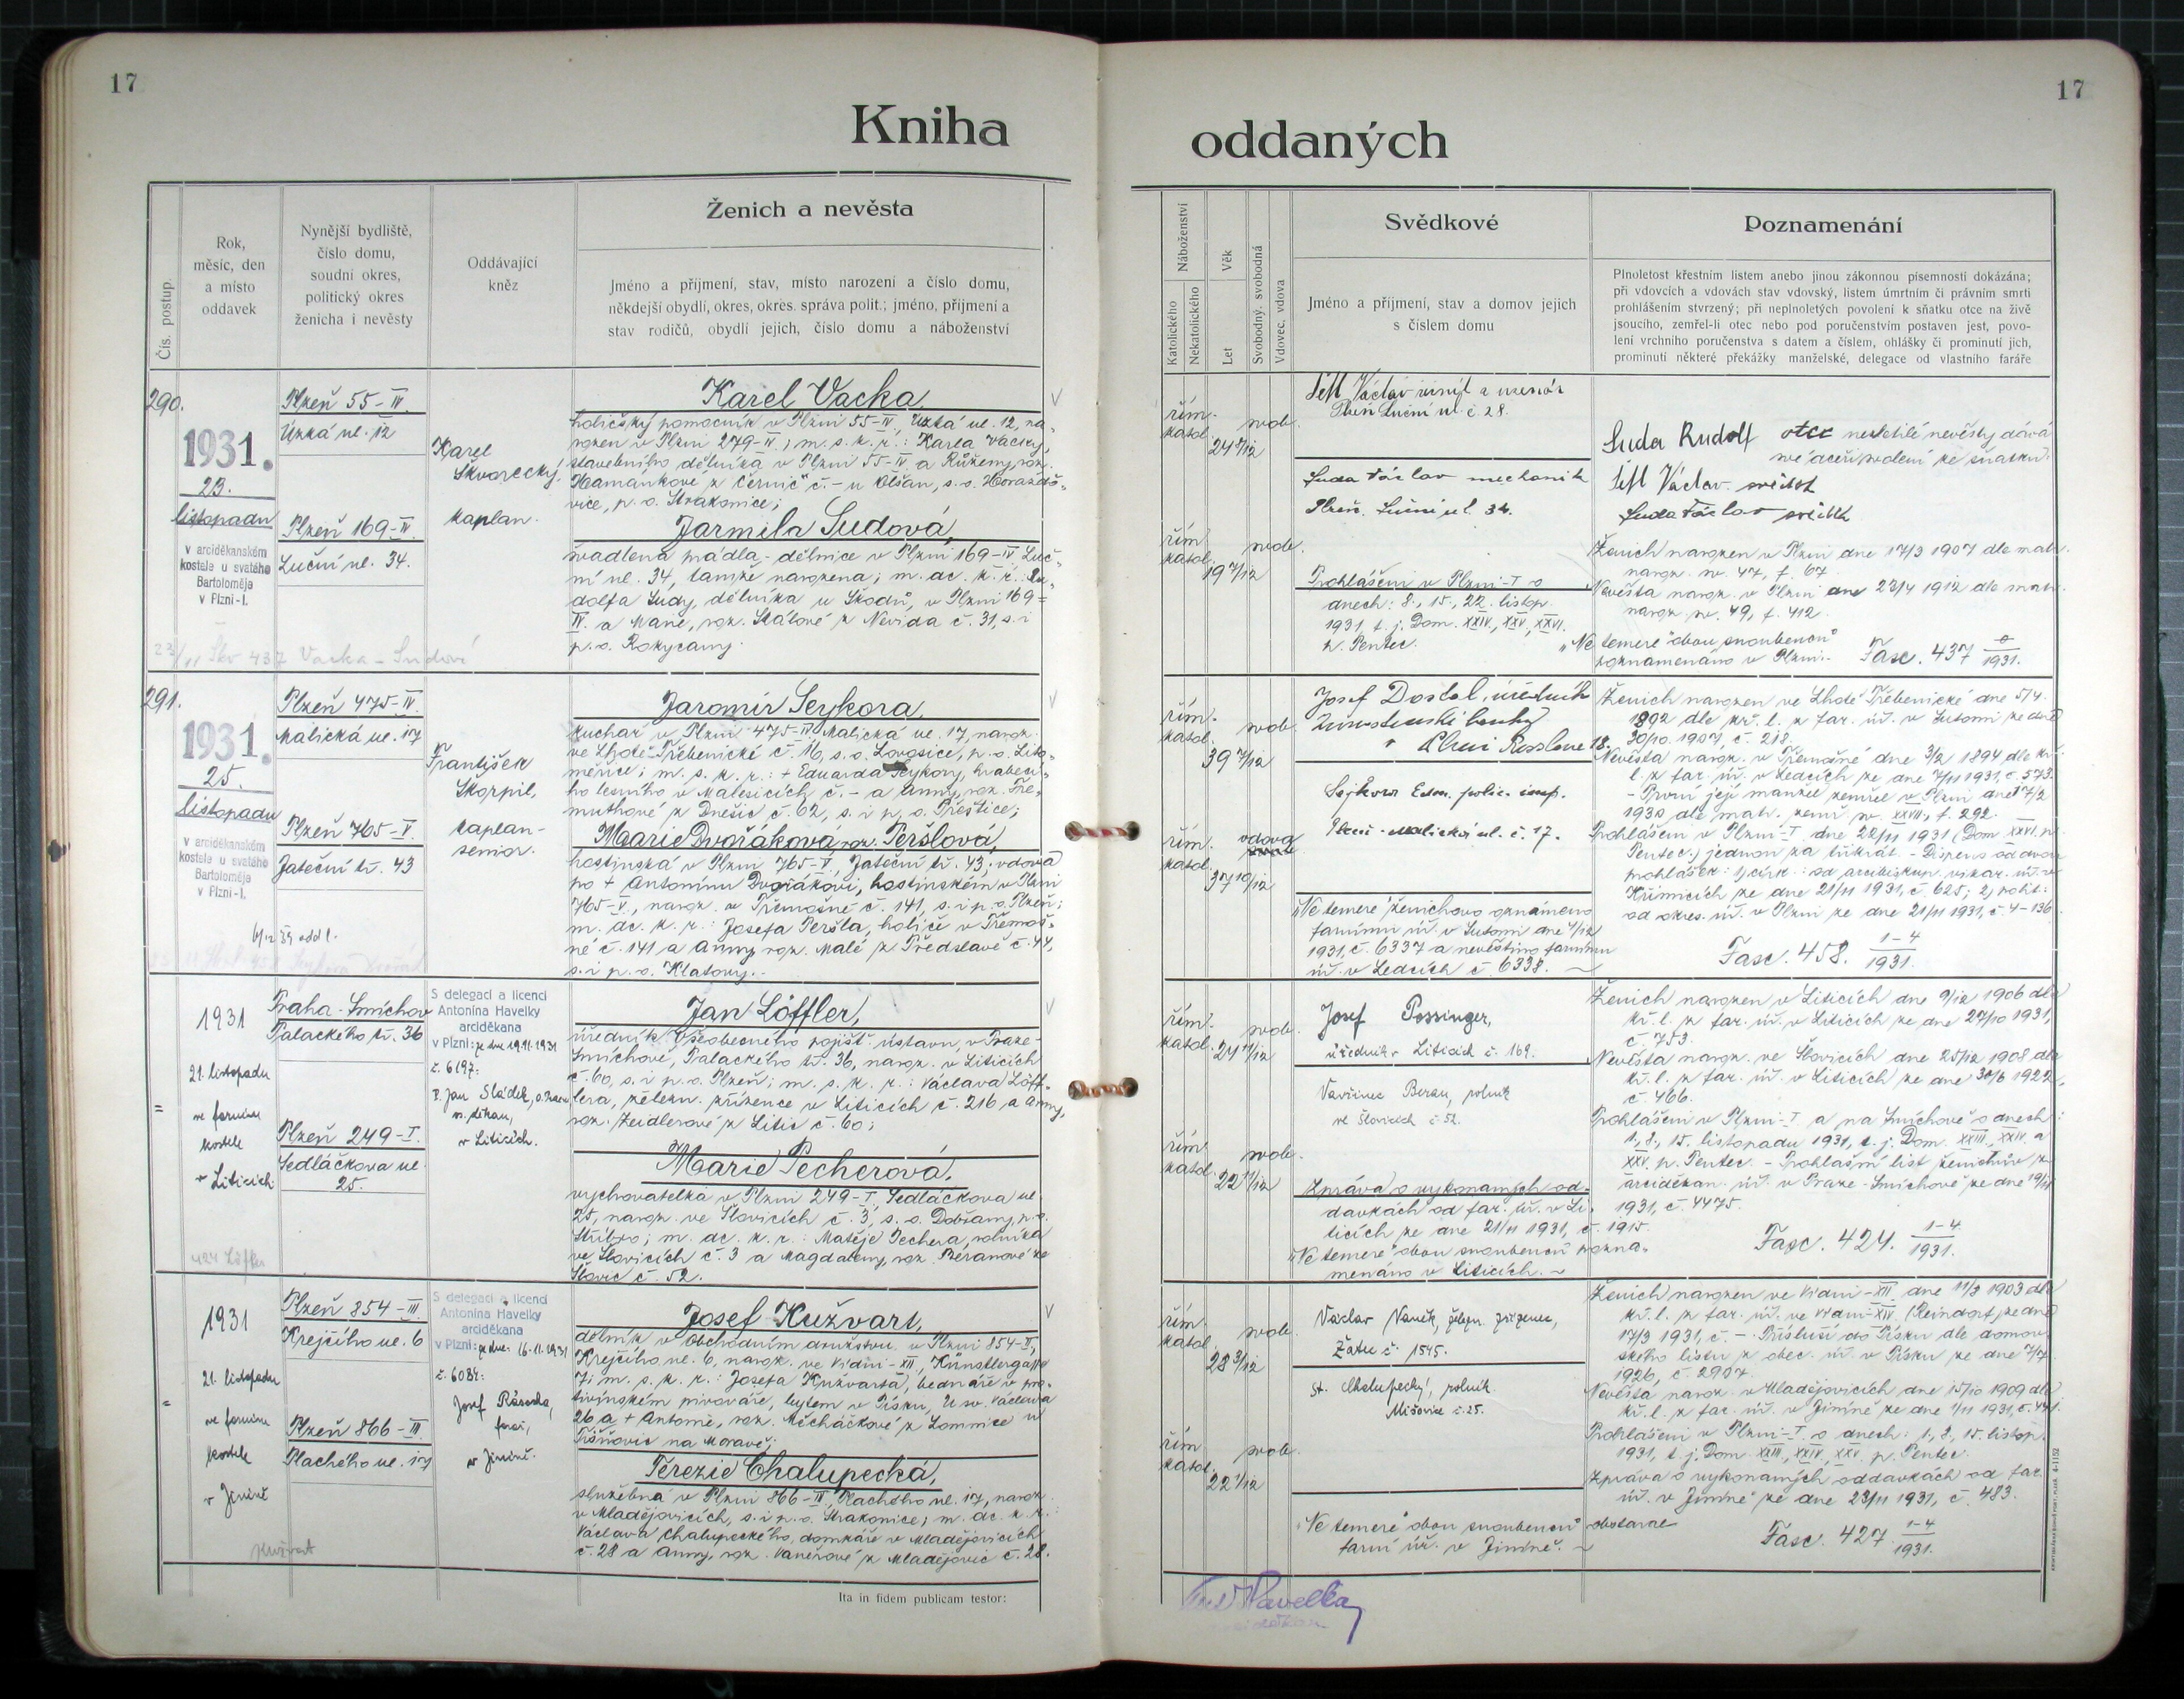 17
17
Kniha
oddaných
Čís. postup.
Rok,
měsíc, den
a místo
oddavek
Nynější bydliště,
číslo domu,
soudní okres,
politický okres
ženicha i nevěsty
Oddávající
kněz
Ženich a nevěsta
Jméno a příjmení, stav, místo narození a číslo domu,
někdejší obydlí, okres, okres. správa polit.; jméno, příjmení a
stav rodičů, obydlí jejich, číslo domu a náboženství
Náboženství
Katolického
Nekatolického
Věk
Let
Svobodný, svobodná
Vdovec, vdova
Svědkové
Jméno a příjmení, stav a domov jejich
s číslem domu
Poznamenání
Plnoletost křestním listem anebo jinou zákonnou písemností dokázána;
při vdovcích a vdovách stav vdovský, listem úmrtním či právním smrti
prohlášením stvrzený; při neplnoletých povolení k sňatku otce na živě
jsoucího, zemřel-li otec nebo pod poručenstvím postaven jest, povo-
lení vrchního poručenstva s datem a číslem, ohlášky či prominutí jich,
prominutí některé překážky manželské, delegace od vlastního faráře
290.
1931.
23.
listopadu
v arciděkanském
kostele u svatého
Bartoloměje
v Plzni-I.
Plzeň 55-IV.
Úzká ul. 12
Plzeň 169-IV
Luční ul. 34.
Karel
Škvorecký,
kaplan.
Karel Vacka,
holičský pomocník v Plzni 55-IV, Úzká ul. 12, na-
rozen v Plzni 279-II; m. s. k. r.: Karla Vacky,
stavebního dělníka v Plzni 55-IV a Růženy, roz.
Hamánkové z Černíč č. – u Olšan, s. o. Horažďo-
vice, p. o. Strakonice;
Jarmila Sudová,
švadlena prádla, dělnice v Plzni 169-IV Luč-
ní ul. 34, tamže narozena; m. dc. k. r.: Ru-
dolfa Sudy, dělníka u Škodů, v Plzni 169-
IV. a Marie, roz. Skálové z Nevida č. 31, s. i
p. o. Rokycany.
řím.
katol.
24 8/12
svob.
řím.
katol.
19 7/12
svob.
Plzeň Luční ul. č 28.
Suda Václav mechanik
Plzeň. Luční ul. 34.
Prohlášeni v Plzni-I o
dnech: 8., 15., 22. listop.
1931, t. j. Dom. XXIV., XXV., XXVI.
p. Pentec.
Suda Rudolf otec nezletilé nevěsty dává
své dceři svolení ke sňatku.
Václav. svědek
Suda Václav svědek
Ženich narozen v Plzni dne 17/3 1907 dle matr.
naroz. sv. 47, f. 67.
Nevěsta naroz. v Plzni dne 23/4 1912 dle matr.
naroz. sv. 49, f. 412.
„Ne temere" obou snoubenců
poznamenáno v Plzni.
Fasc. 437 0/1931.
291.
1931.
25.
listopadu
v arciděkanském
kostele u svatého
Bartoloměje
v Plzni-I.
Plzeň 475-IV.
Malická ul. 17
Plzeň 765-V.
Jateční tř. 43
František
Škorpil,
kaplan-
senior.
Jaromír Seykora,
kuchař v Plzni 475-IV, Malická ul. 17, naroz.
ve Lhotě Třebenické č. 16, s. o. Lovosice, p. o. Lito-
měřice; m. s. k. r.: + Eduarda Seykory, hraběcí-
ho lesního v Malesicích č. – a Anny, roz. Tre-
muthové z Dnešic č. 62, s. i p. o. Přeštice;
Marie Dvořáková roz. Peršlová,
hostinská v Plzni 765-V, Jateční tř. 43, vdova
po + Antonínu Dvořákovi, hostinském v Plzni
765-V., naroz. v Třemošné č. 141, s. i p. o. Plzeň;
m. dc. k. r.: Josefa Peršla, holiče v Třemoš-
né č. 141 a Anny, roz. Malé z Předslavě č. 44,
s. i p. o. Klatovy.
řím.
katol.
39 7/12
svob.
řím.
katol.
37 10/12
vdova
Josef Dostal, úředník
Živnostenské banky
Sejkora Edm. polic. insp.
Plzeň - Malická ul. č. 17.
„Ne temere" ženichovo oznámeno
farnímu úř. v Sutomi dne 4/12
1931, č. 6337 a nevěstino farnímu
úř. v Ledcích č 6338.
Ženich narozen ve Lhotě Třebenické dne 5/4
1892 dle kř. l. z far. úř. v Sutomi ze dne
30/10. 1907, č. 218.
Nevěsta naroz. v Třemošné dne 3/2 1894 dle kř.
l. z far. úř. v Ledcích ze dne 7/11 1931, č. 573.
– První její manžel zemřel v Plzni dne 17/2
1930 dle matr. zemř. sv. XXVIII., f. 292.
Prohlášeni v Plzni-I dne 22/11 1931 (Dom XXVI. p.
Pentec.) jednou za třikrát. – Dispens od dvou
prohlášek: 1) círk.: od arcibiskup. vikar. úř. v
Křimicích ze dne 21/11 1931, č 625; 2) polit.:
od okres. úř. v Plzni ze dne 21/11 1931, č. 4-136.
Fasc. 458. 1-4/1931.
1931
21. listopadu
ve farním
kostele
v Liticích
Praha-Smíchov
Palackého tř. 36
Plzeň 249-I.
Sedláčkova ul.
25.
S delegací a licencí
Antonína Havelky
arciděkana
v Plzni: ze dne 19.11.1931
č. 6197:
P. Jan Sládek,
v Liticích.
Jan Löffler,
úředník Všeobecného pojišť. ústavu, v Praze-
Smíchově, Palackého tř. 36, naroz. v Liticích
č. 60, s. i p. o. Plzeň; m. s. k. r.: Václava Löff-
lera, železn. zřízence v Liticích č. 216 a Anny,
roz. Zeidlerové z Litic č. 60;
Marie Pecherová,
vychovatelka v Plzni 249-I, Sedláčkova ul.
25, naroz. ve Šlovicích č. 3, s. o. Dobřany, p. o.
Stříbro; m. dc. k. r.: Matěje Pechera, rolníka
ve Šlovicích č. 3 a Magdaleny, roz. Beranové ze
Šlovic č. 52.
řím.
katol.
24 11/12
svob.
řím.
katol.
22 11/12
svob.
Josef Possinger,
úředník v Liticích č. 169.
Vavřinec Beran, rolník
ve Šlovicích č 52.
Zpráva o vykonaných od-
davkách od far. úř. v Li-
ticích ze dne 21/11 1931, č. 1915.
„Ne temere" obou snoubenců pozna-
menáno v Liticích.
Ženich narozen v Liticích dne 9/12 1906 dle
kř. l. z far. úř. v Liticích ze dne 27/10 1931,
č. 753.
Nevěsta naroz. ve Šlovicích dne 25/12 1908 dle
kř. l. z far. úř. v Liticích ze dne 30/6 1922,
č 466.
Prohlášeni v Plzni-I a na Smíchově o dnech:
1., 8., 15. listopadu 1931, t. j. Dom. XXIII., XXIV. a
XXV. p. Pentec. – Prohlašní list ženichův z
arciděkan. úř. v Praze-Smíchově ze dne 19/11
1931, č. 4475.
Fasc. 424. 1-4/1931.
1931
21. listopadu
ve farním
kostele
v Jiníně
Plzeň 854-III
Krejčího ul. 6
Plzeň 866-III.
Plachého ul. 17
S delegací a licencí
Antonína Havelky
arciděkana
v Plzni: ze dne 16.11.1931
č. 6084:
farář,
v Jiníně.
Josef Kužvart,
dělník v Obchodním družstvu, v Plzni 854-III,
Krejčího ul. 6, naroz. ve Vídni-XII, Künstlergasse
7; m. s. k. r.: Josefa Kužvarta, bednáře v pro-
tivínském pivováře, bytem v Písku, U sv. Václava
26 a + Antonie, roz. Měcháčkové z Lomnice u
Tišňovic na Moravě;
Terezie Chalupecká,
služebná v Plzni 866-III, Plachého ul. 17, naroz.
v Mladějovicích, s. i p. o. Strakonice; m. dc. k. r.:
Václava Chalupeckého, domkáře v Mladějovicích
č. 28 a Anny, roz. Vaněrové z Mladějovic č. 28.
Kužvart
řím.
katol.
28 8/12
svob.
řím
katol.
22 1/12
svob.
Václav Vaněk, železn. zřízenec,
Žatec č. 1545.
St. Chalupecký, rolník.
Mišovice č. 25.
„Ne temere" obou snoubenců obstaral
farní úř. v Jiníně.
Ženich narozen ve Vídni-XII, dne 11/3 1903 dle
kř. l. z far. úř. ve Vídni-XII. (Reindorf) ze dne
17/3 1931, č. – Přísluší do Písku dle domov-
ského listu z obec. úř. v Písku ze dne 7/7
1926, č. 2907.
Nevěsta naroz. v Mladějovicích dne 15/10 1909 dle
kř. l. z far. úř. v Jiníně ze dne 1/11 1931, č. 441.
Prohlášeni v Plzni-I. o dnech: 1., 8., 15. listop.
1931, t. j. Dom XXIII., XXIV., XXV p. Pentec.
Zpráva o vykonaných oddavkách od far.
úř. v Jiníně ze dne 23/11 1931, č. 483.
Fasc. 427 1-4/1931.
Ita in fidem publicam testor:
Havelka